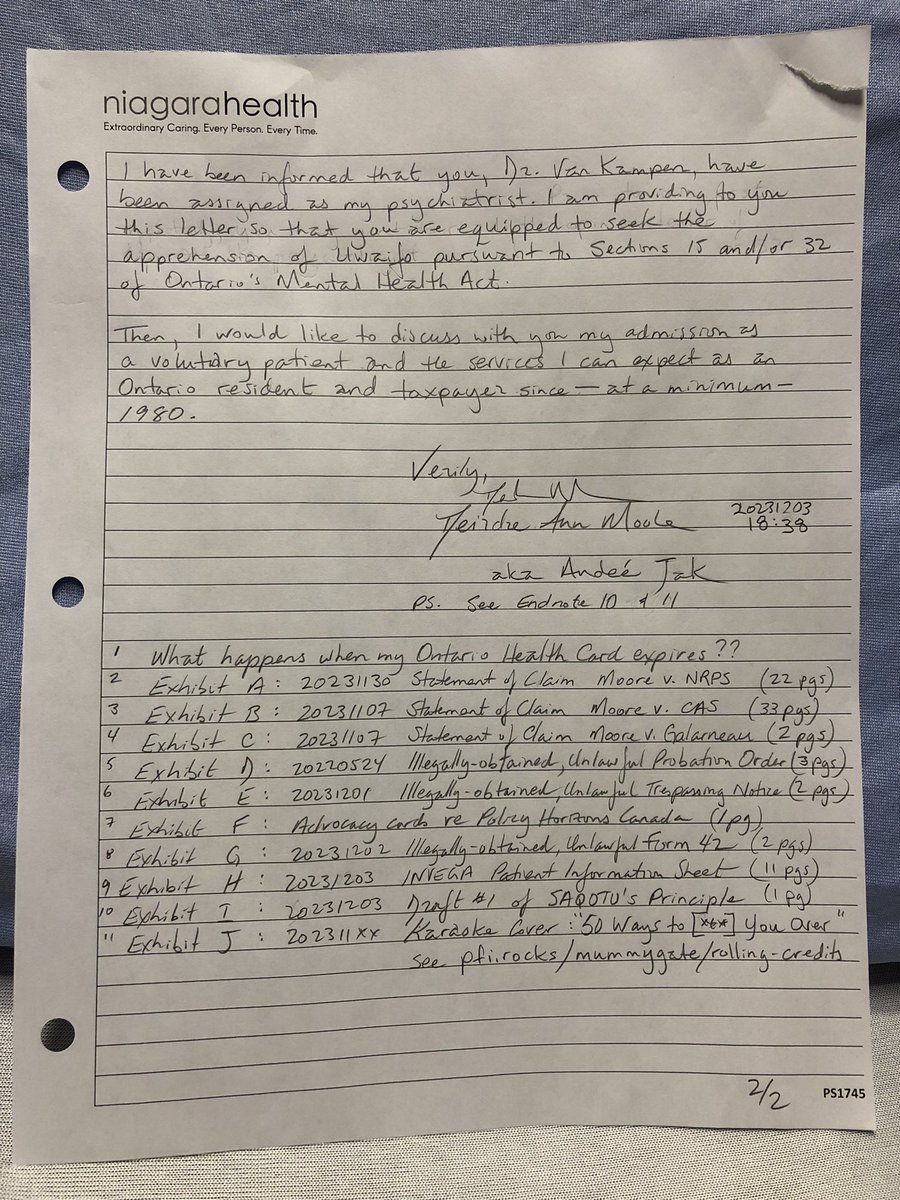 niagarahealth
Extraordinary Caring. Every Person. Every Time.
I have been informed that you, Dr. Van Kampen, have
been assigned as my psychiatrist. I am providing to you
this letter so that you are equipped to seek the
apprehension of Uwaifo pursuant to Sections 15 and/or 32
of Ontario's Mental Health Act.
Then, I would like to discuss with you my admission as
a voluntary patient and the services I can expect as an
Ontario resident and taxpayer since — at a minimum —
1980.
Verily,
Deirdre Ann Moore 20231203
18:38
aka Andeé Jak
PS. See Endnote 10 & 11
1 What happens when my Ontario Health Card expires??
2 Exhibit A : 20231130 Statement of Claim Moore v. NRPS (22 pgs)
3 Exhibit B : 20231107 Statement of Claim Moore v. CAS (33 pgs)
4 Exhibit C : 20231107 Statement of Claim Moore v. Galarneau (2 pgs)
5 Exhibit D : 20220524 Illegally-obtained, Unlawful Probation Order (3 pgs)
6 Exhibit E : 20231201 Illegally-obtained, Unlawful Trespassing Notice (2 pgs)
7 Exhibit F : Advocacy cards re Policy Horizons Canada (1 pg)
8 Exhibit G : 20231202 Illegally-obtained, Unlawful Form 42 (2 pgs)
9 Exhibit H : 20231203 INVEGA Patient Information Sheet (11 pgs)
10 Exhibit I : 20231203 Draft #1 of SAQOTU's Principle (1 pg)
11 Exhibit J : 202311XX Karaoke Cover : "50 Ways to [***] You Over"
see pfi.rocks/mummygate/rolling-credits
2/2 PS1745